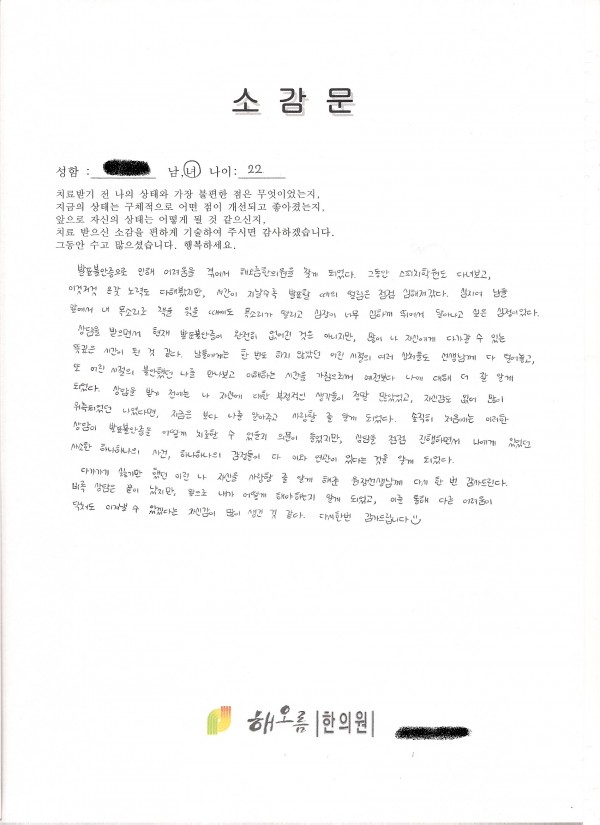 소 감 문
성함 : 남,여 나이: 22
치료받기 전 나의 상태와 가장 불편한 점은 무엇이었는지,
지금의 상태는 구체적으로 어떤 점이 개선되고 좋아졌는지,
앞으로 자신의 상태는 어떻게 될 것 같으신지,
치료 받으신 소감을 편하게 기술하여 주시면 감사하겠습니다.
그동안 수고 많으셨습니다. 행복하세요.
발표불안증으로 인해 어려움을 겪어서 해오름한의원을 찾게 되었다. 그동안 스피치학원도 다녀보고,
이것저것 온갖 노력도 다해봤지만, 시간이 지날수록 발표할 때의 떨림은 점점 심해져갔다. 심지어 남들
앞에서 내 목소리로 책을 읽을 때에도 목소리가 떨리고 심장이 너무 심하게 뛰어서 달아나고 싶은 심정이었다.
상담을 받으면서 현재 발표불안증이 완전히 없어진 것은 아니지만, 많이 나 자신에게 다가갈 수 있는
뜻깊은 시간이 된 것 같다. 남들에게는 한 번도 하지 않았던 어린 시절의 여러 상처들도 선생님께 다 털어놓고,
또 어린 시절의 불안했던 나를 만나보고 이해하는 시간을 가짐으로써 예전보다 나에 대해 더 잘 알게
되었다. 상담을 받기 전에는 나 자신에 대한 부정적인 생각들이 정말 많았었고, 자신감도 없어 많이
위축되었던 나였다면, 지금은 보다 나를 알아주고 사랑할 줄 알게 되었다. 솔직히 처음에는 이러한
상담이 발표불안증을 어떻게 치료할 수 있을지 의문이 들었지만, 상담을 점점 진행하면서 나에게 있었던
사소한 하나하나의 사건, 하나하나의 감정들이 다 이와 연관이 있다는 것을 알게 되었다.
다가가기 싫기만 했던 어린 나 자신을 사랑할 줄 알게 해준 원장선생님께 다시 한 번 감사드린다.
비록 상담은 끝이 났지만, 앞으로 내가 어떻게 해야하는지 알게 되었고, 이를 통해 다른 어려움이
닥쳐도 이겨낼 수 있겠다는 자신감이 많이 생긴 것 같다. 다시한번 감사드립니다
해오름 한의원